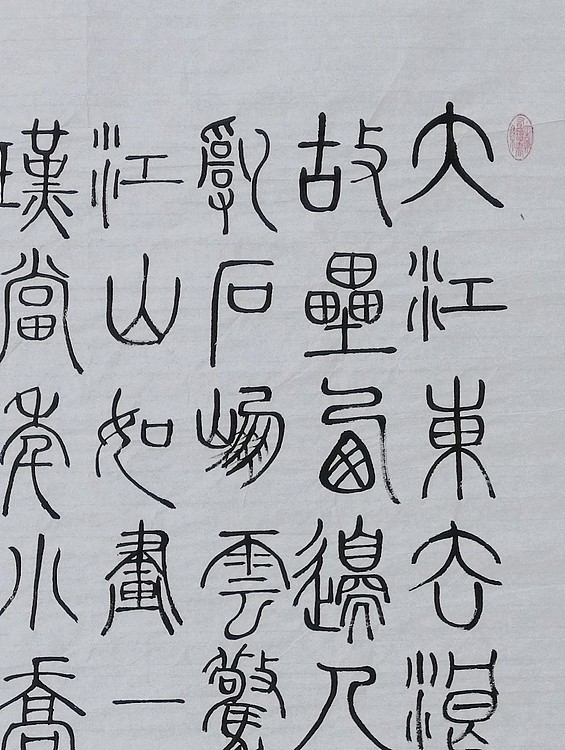 大江東去浪
故壘西邊人
亂石崩雲驚
江山如畫一
瑾當年小喬